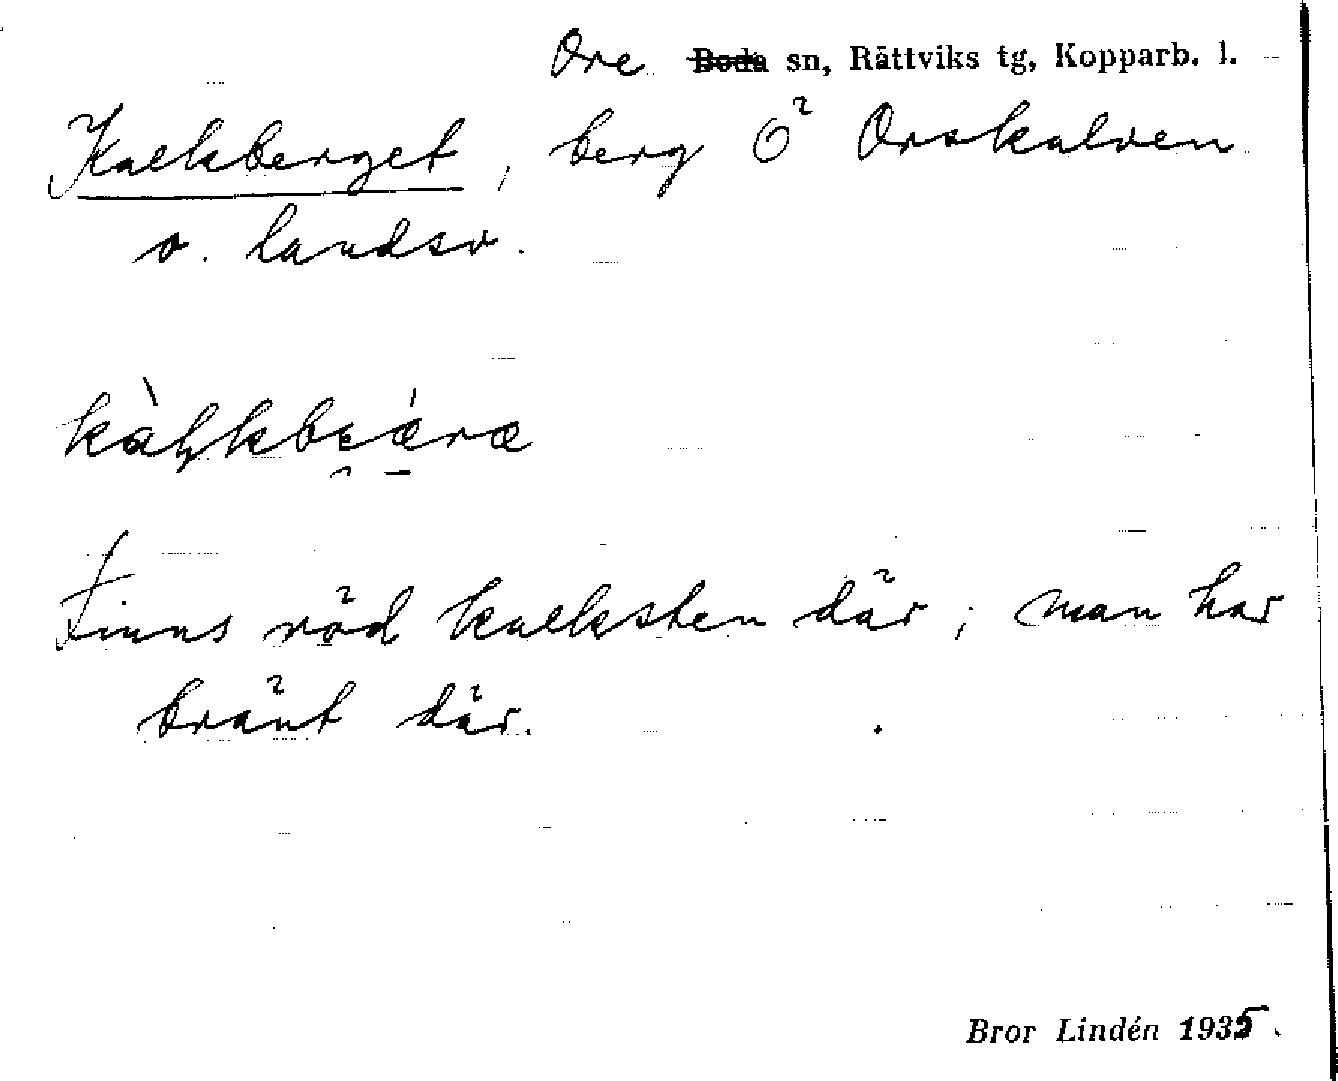 Ore ~~Boda~~ sn, Rättviks tg, Kopparb. l.
Kalkberget, berg Ö Orskalven
o. landsv.
Finns röd kalksten där; man har
bränt där.
Bror Lindén 1935.